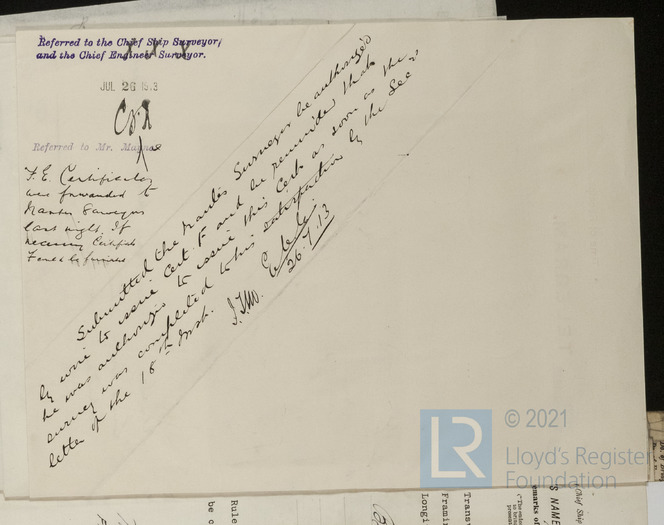 Referred to the Chief Ship Surveyor,
and the Chief Engineer Surveyor.
JUL 26 1913
Referred to Mr.
F.E. Certificate
was forwarded to
Nantes Surveyors
last night. If
necessary Certificate
F could be
Submitted the Nantes Surveyor be authorized
by wire to issue Cert. F and be reminded that
he was authorized to issue this Cert as soon as the
survey was completed to his satisfaction by the Sec's
letter of the 18th Inst.
26.7.13
© 2021
LR
Lloyd's Register
Foundation
Rule
be c
Longi
Framin
Trans
S NAME
emarks of
Chief Ship